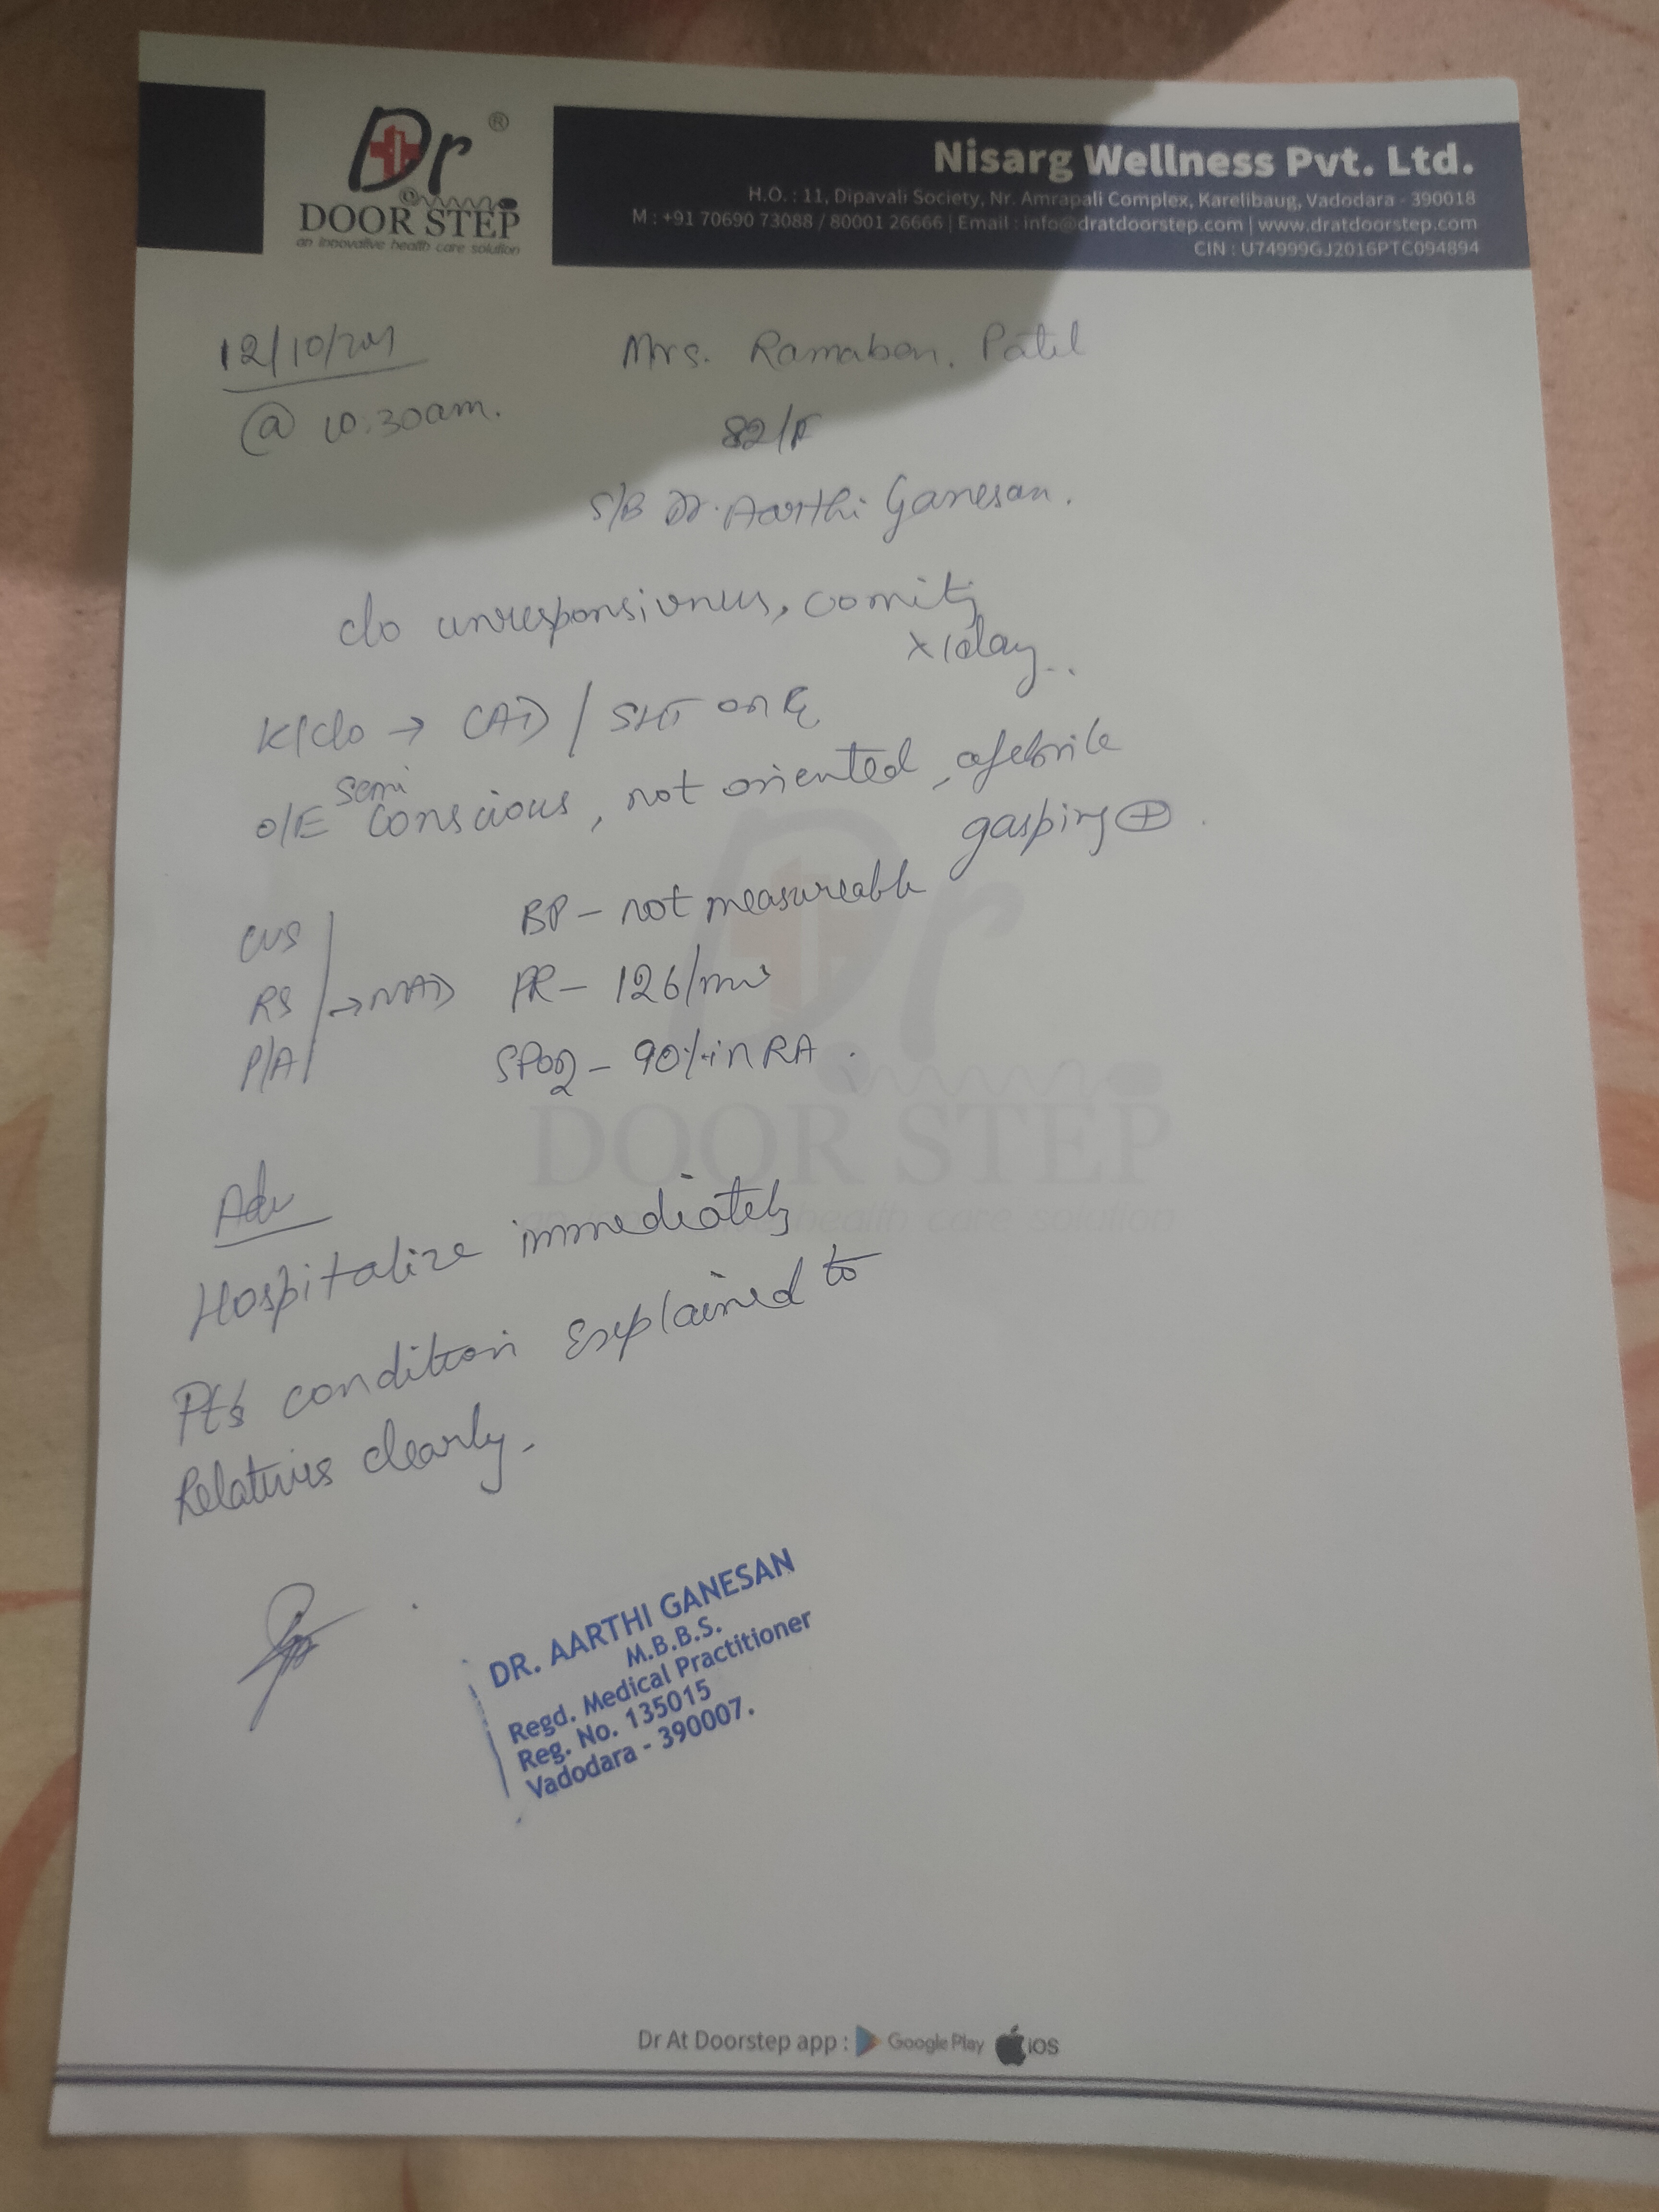 Dr ®
@
DOOR STEP
an innovative health care solution
Nisarg Wellness Pvt. Ltd.
H.O. : 11, Dipavali Society, Nr. Amrapali Complex, Karelibaug, Vadodara - 390018
M : +91 70690 73088 / 80001 26666 | Email : info@dratdoorstep.com | www.dratdoorstep.com
CIN : U74999GJ2016PTC094894
12/10/201
Mrs. Ramaben. Patel
@ 10:30am.
82/F
S/B Dr. Aarthi Ganesan.
c/o unresponsiveness, vomiting
x 1 day..
K/c/o → CAD / SHT on Rx
O/E semi conscious, not oriented, afebrile
gasping ⊕.
BP - not measureable
CVS
RS → NAD PR - 126/min
P/A SPO2 - 90% in RA.
Dr
DOOR STEP
an innovative health care solution
Adv
Hospitalize immediately
Pt's condition Explained to
Relatives clearly.
DR. AARTHI GANESAN
M.B.B.S.
Regd. Medical Practitioner
Reg. No. 135015
Vadodara - 390007.
Dr At Doorstep app : Google Play iOS